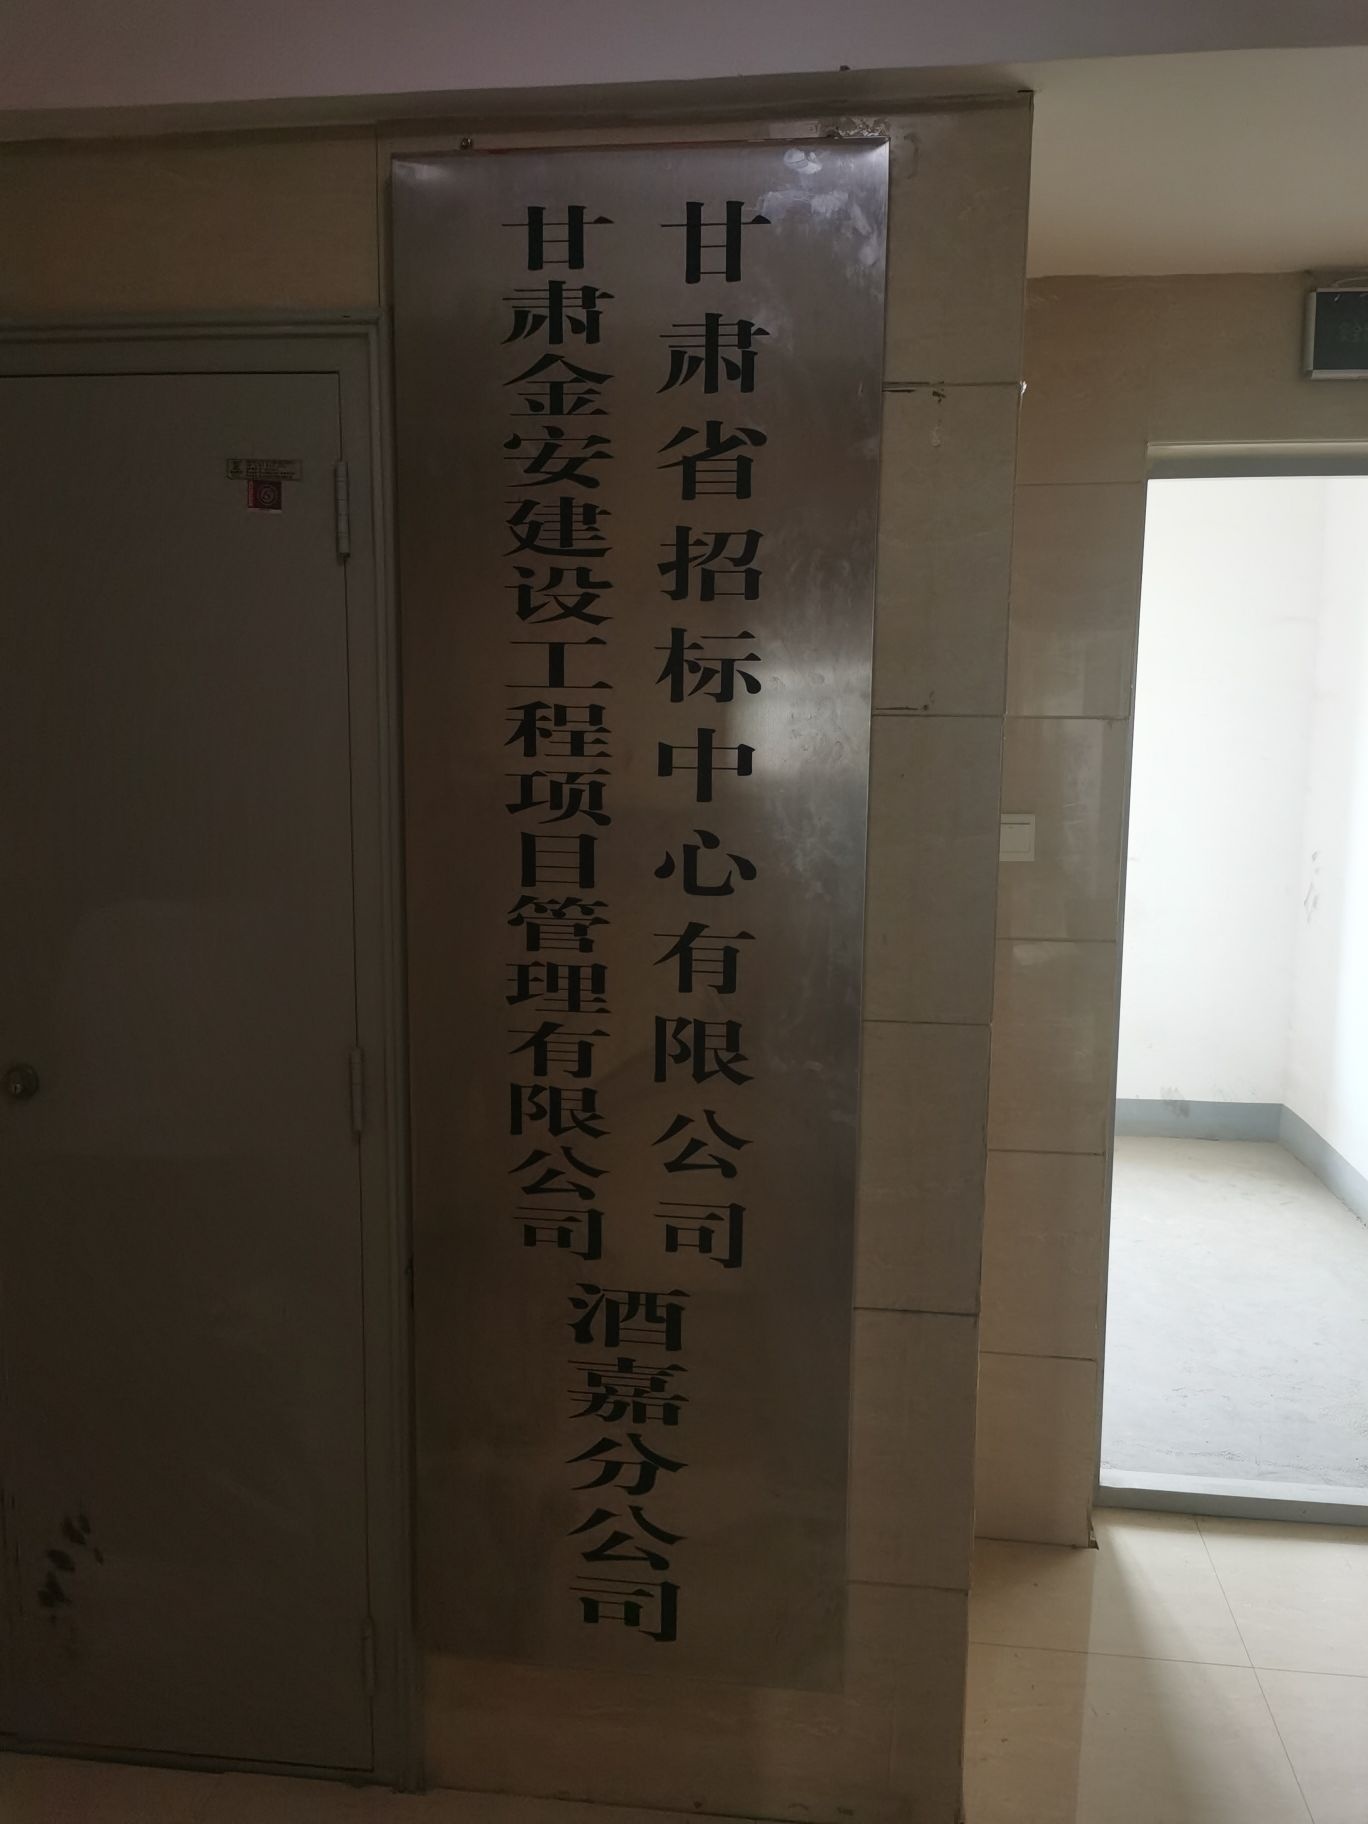 甘肃省招标中心有限公司
甘肃金安建设工程项目管理有限公司
酒嘉分公司